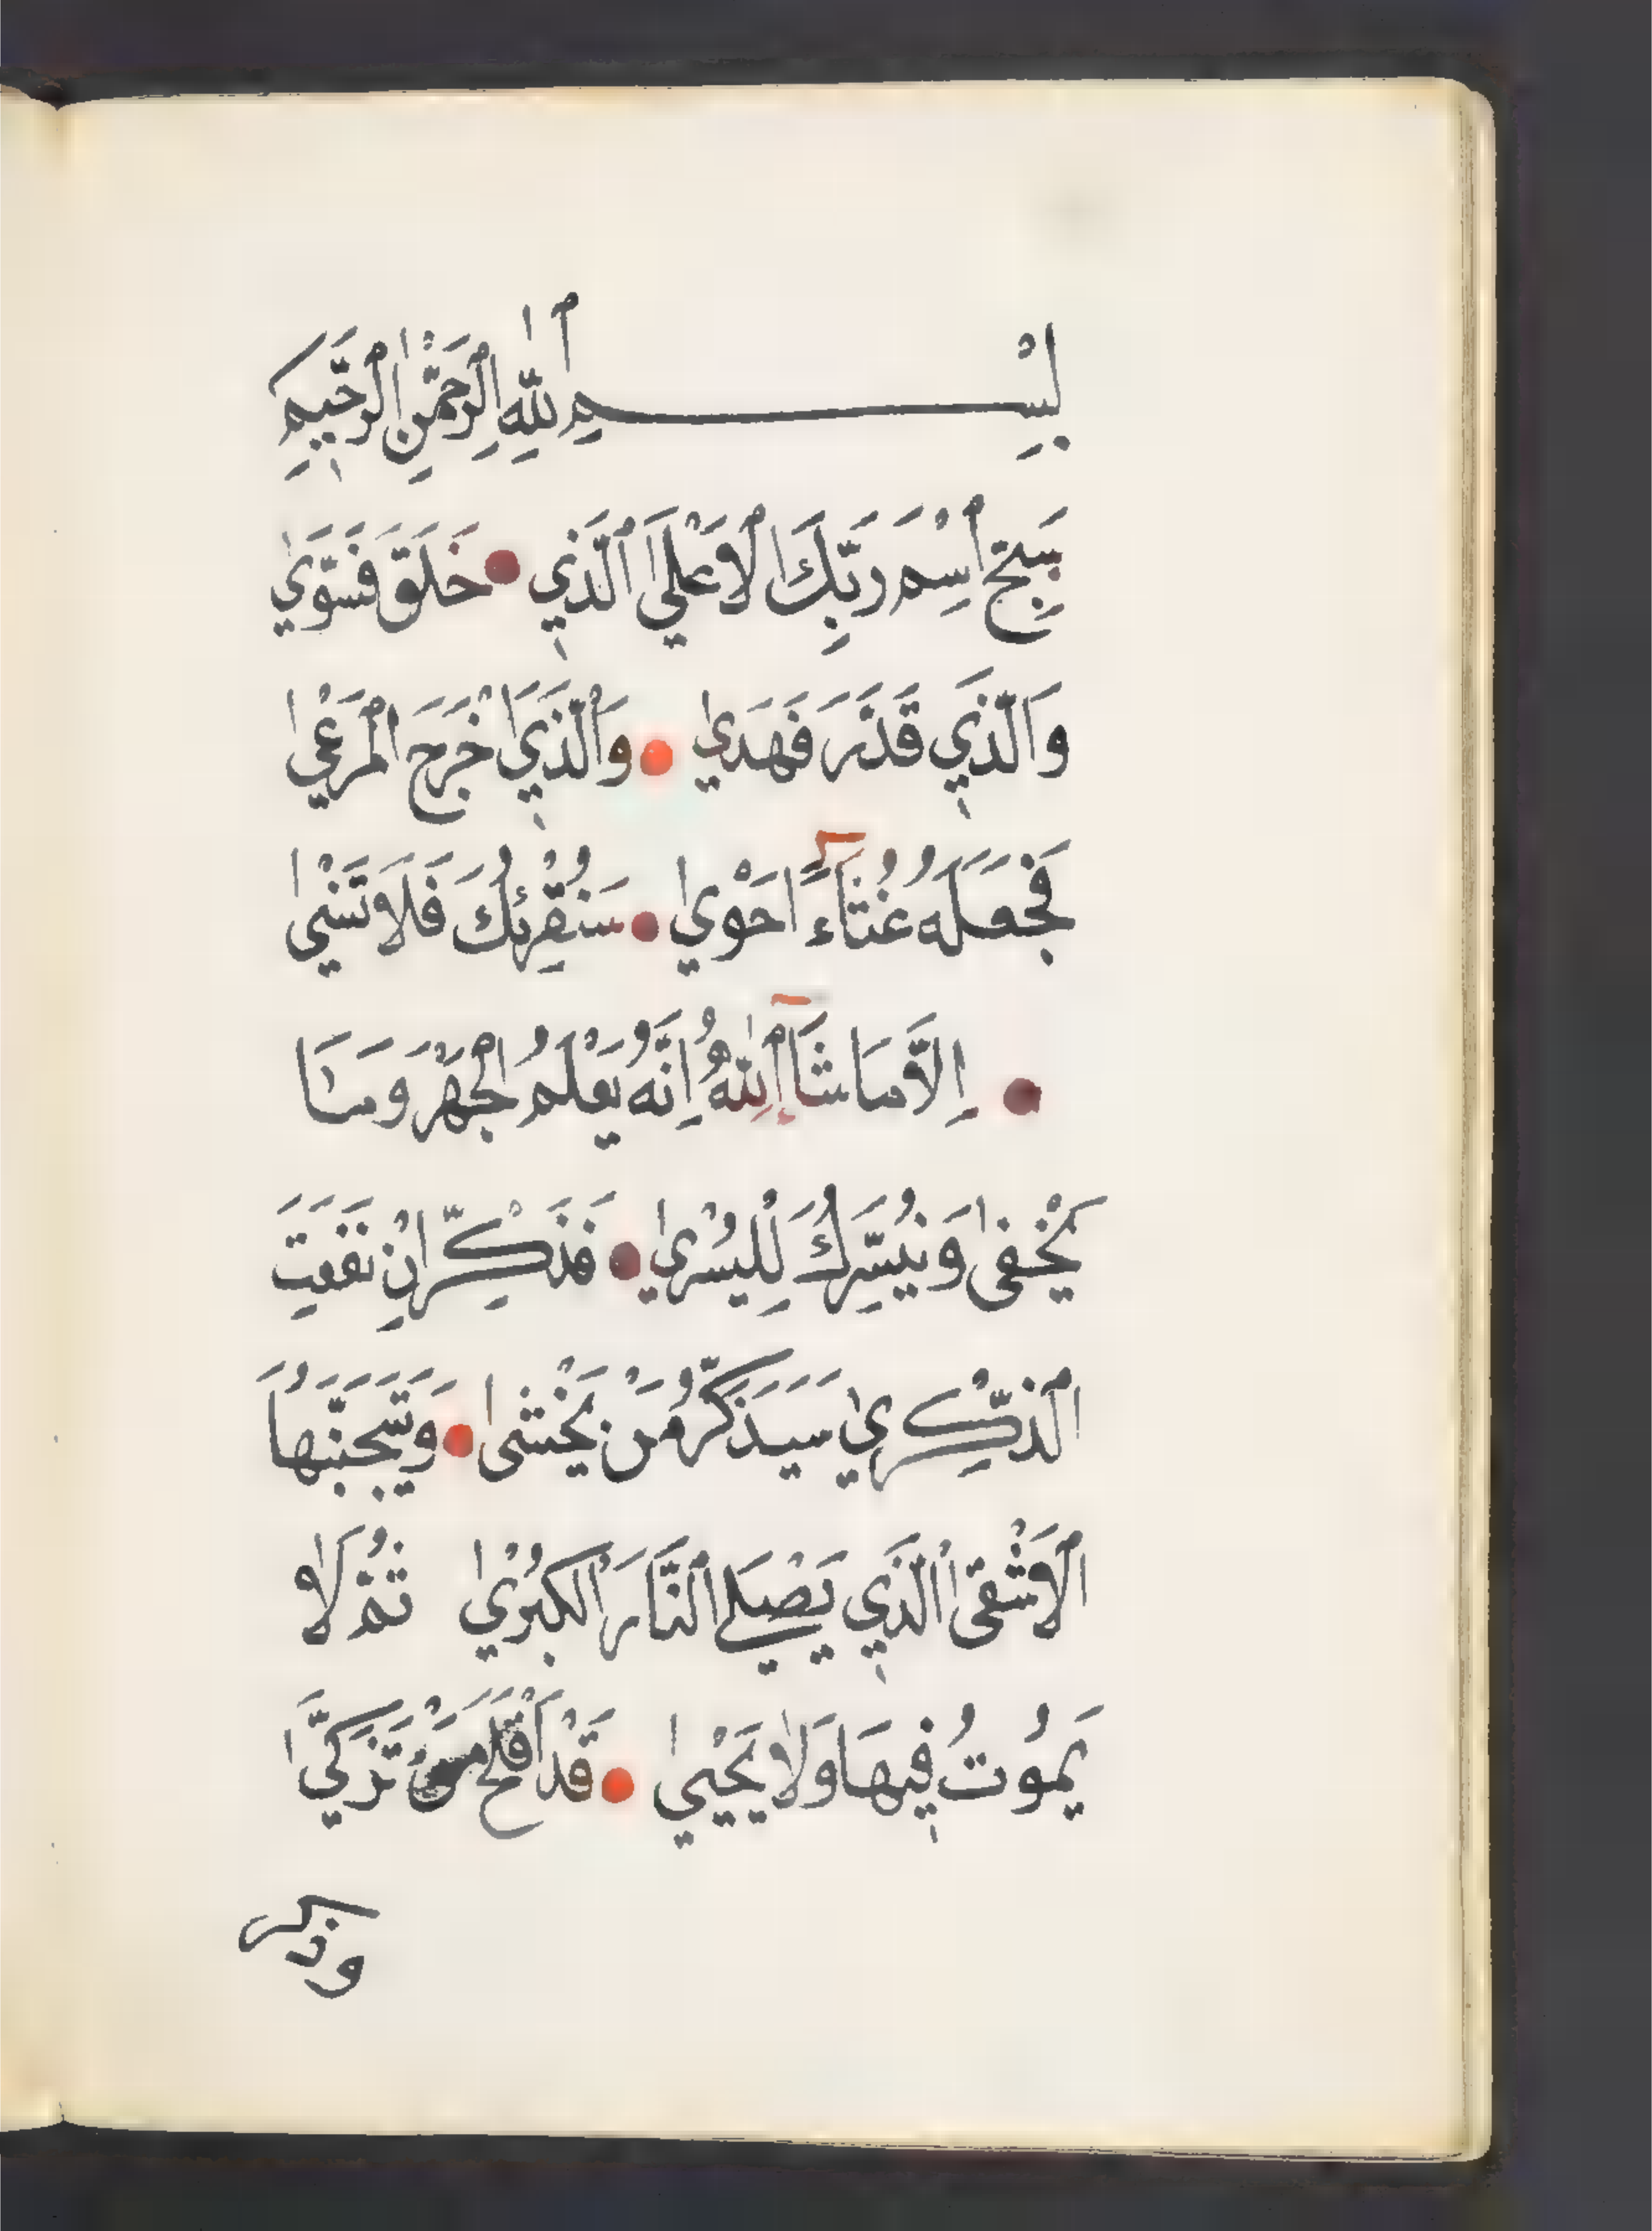 بِسْمِ ٱللّٰهِ ٱلرَّحْمٰنِ ٱلرَّحِيمِ
سَبِّحِ ٱسْمَ رَبِّكَ ٱلاَعْلَي ٱلَّذِي ● خَلَقَ فَسَوّٰي
وَالَّذِي قَدَّرَ فَهَدٰي ● وَٱلَّذِي اَخْرَجَ ٱلمَرْعٰي
فَجَعَلَهُ غُثَآءً اَحْوٰي ● سَنُقْرِئُكَ فَلَا تَنْسٰي
● اِلَّا مَا شَآءَ ٱللّٰهُ اِنَّهُ يَعْلَمُ ٱلجَهْرَ وَمَا
يَخْفٰي وَنُيَسِّرُكَ لِلْيُسْرٰي ● فَذَكِّرْ اِنْ نَفَعَتِ
ٱلذِّكْرٰي سَيَذَّكَّرُ مَنْ يَخْشٰي ● وَيَتَجَنَّبُهَا
ٱلاَشْقَي ٱلَّذِي يَصْلَي ٱلنَّارَ ٱلكُبْرٰي ثُمَّ لَا
يَمُوتُ فِيهَا وَلَا يَحْيٰي ● قَدْ اَفْلَحَ مَنْ تَزَكّٰي
وذكر